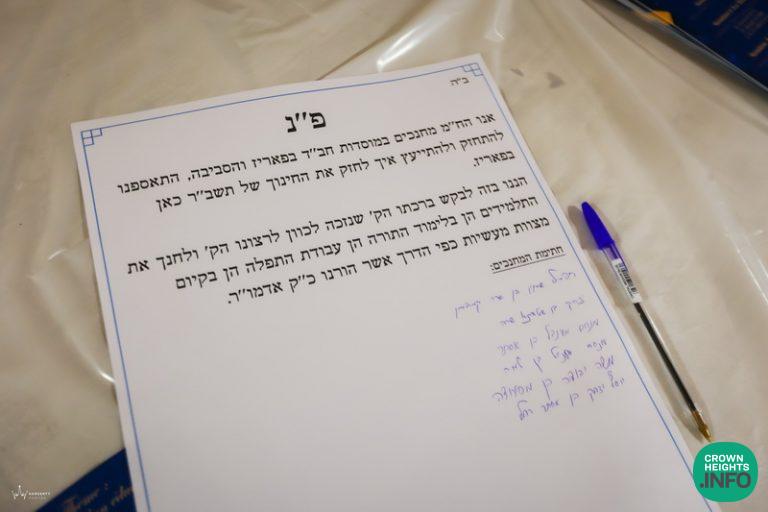 ב"ה
פ"נ
אנו הח"מ מחנכים במוסדות חב"ד בפאריז והסביבה, התאספנו
להתחזק ולהתייעץ איך לחזק את החינוך של תשב"ר כאן
בפאריז.
הננו בזה לבקש ברכתו הק' שנזכה לכוון לרצונו הק' ולחנך את
התלמידים הן בלימוד התורה הן עבודת התפלה הן בקיום
מצוות מעשיות כפי הדרך אשר הורנו כ"ק אדמו"ר.
חתימת המחנכים:
מנחם מענדל בן אסתר
מנחם מענדל בן
בן
יוסף יצחק בן אסתר רחל
CROWN
HEIGHTS
.INFO